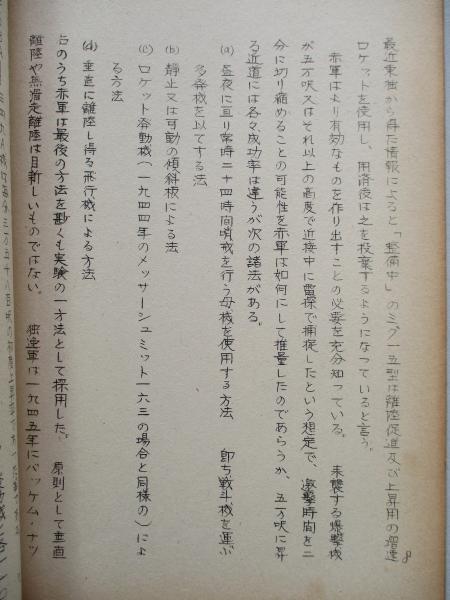 8
最近東独から得た情報によると「整備中」のミグ一五型は離陸促進及び上昇用の増速
ロケットを使用し、用済後は之を投棄するようになつていると言う。
赤軍はより有効なものを作り出すことの必要を充分知つている。 来襲する爆撃機
が五万呎又はそれ以上の高度で近接中に電探で捕捉したという想定で、邀撃時間を二
分に切り縮めることの可能性を赤軍は如何にして推量したのであらうか、五万呎に昇
る近道には各々成功率は違うが次の諸法がある。
(a) 昼夜に亘り常時二十四時間哨戒を行う母機を使用する方法 即ち戦斗機を運ぶ
多発機を以てする法
(b) 静止又は可動の傾斜板による法
(c) ロケット発動機(一九四四年のメッサーシュミット一六三の場合と同様の)によ
る方法
(d) 垂直に離陸し得る飛行機による方法
右のうち赤軍は最後の方法を尠くも実験の一方法として採用した。 原則として垂直
離陸や無滑走離陸は目新しいものではない。 独逸軍は一九四五年にバッケム・ナツ